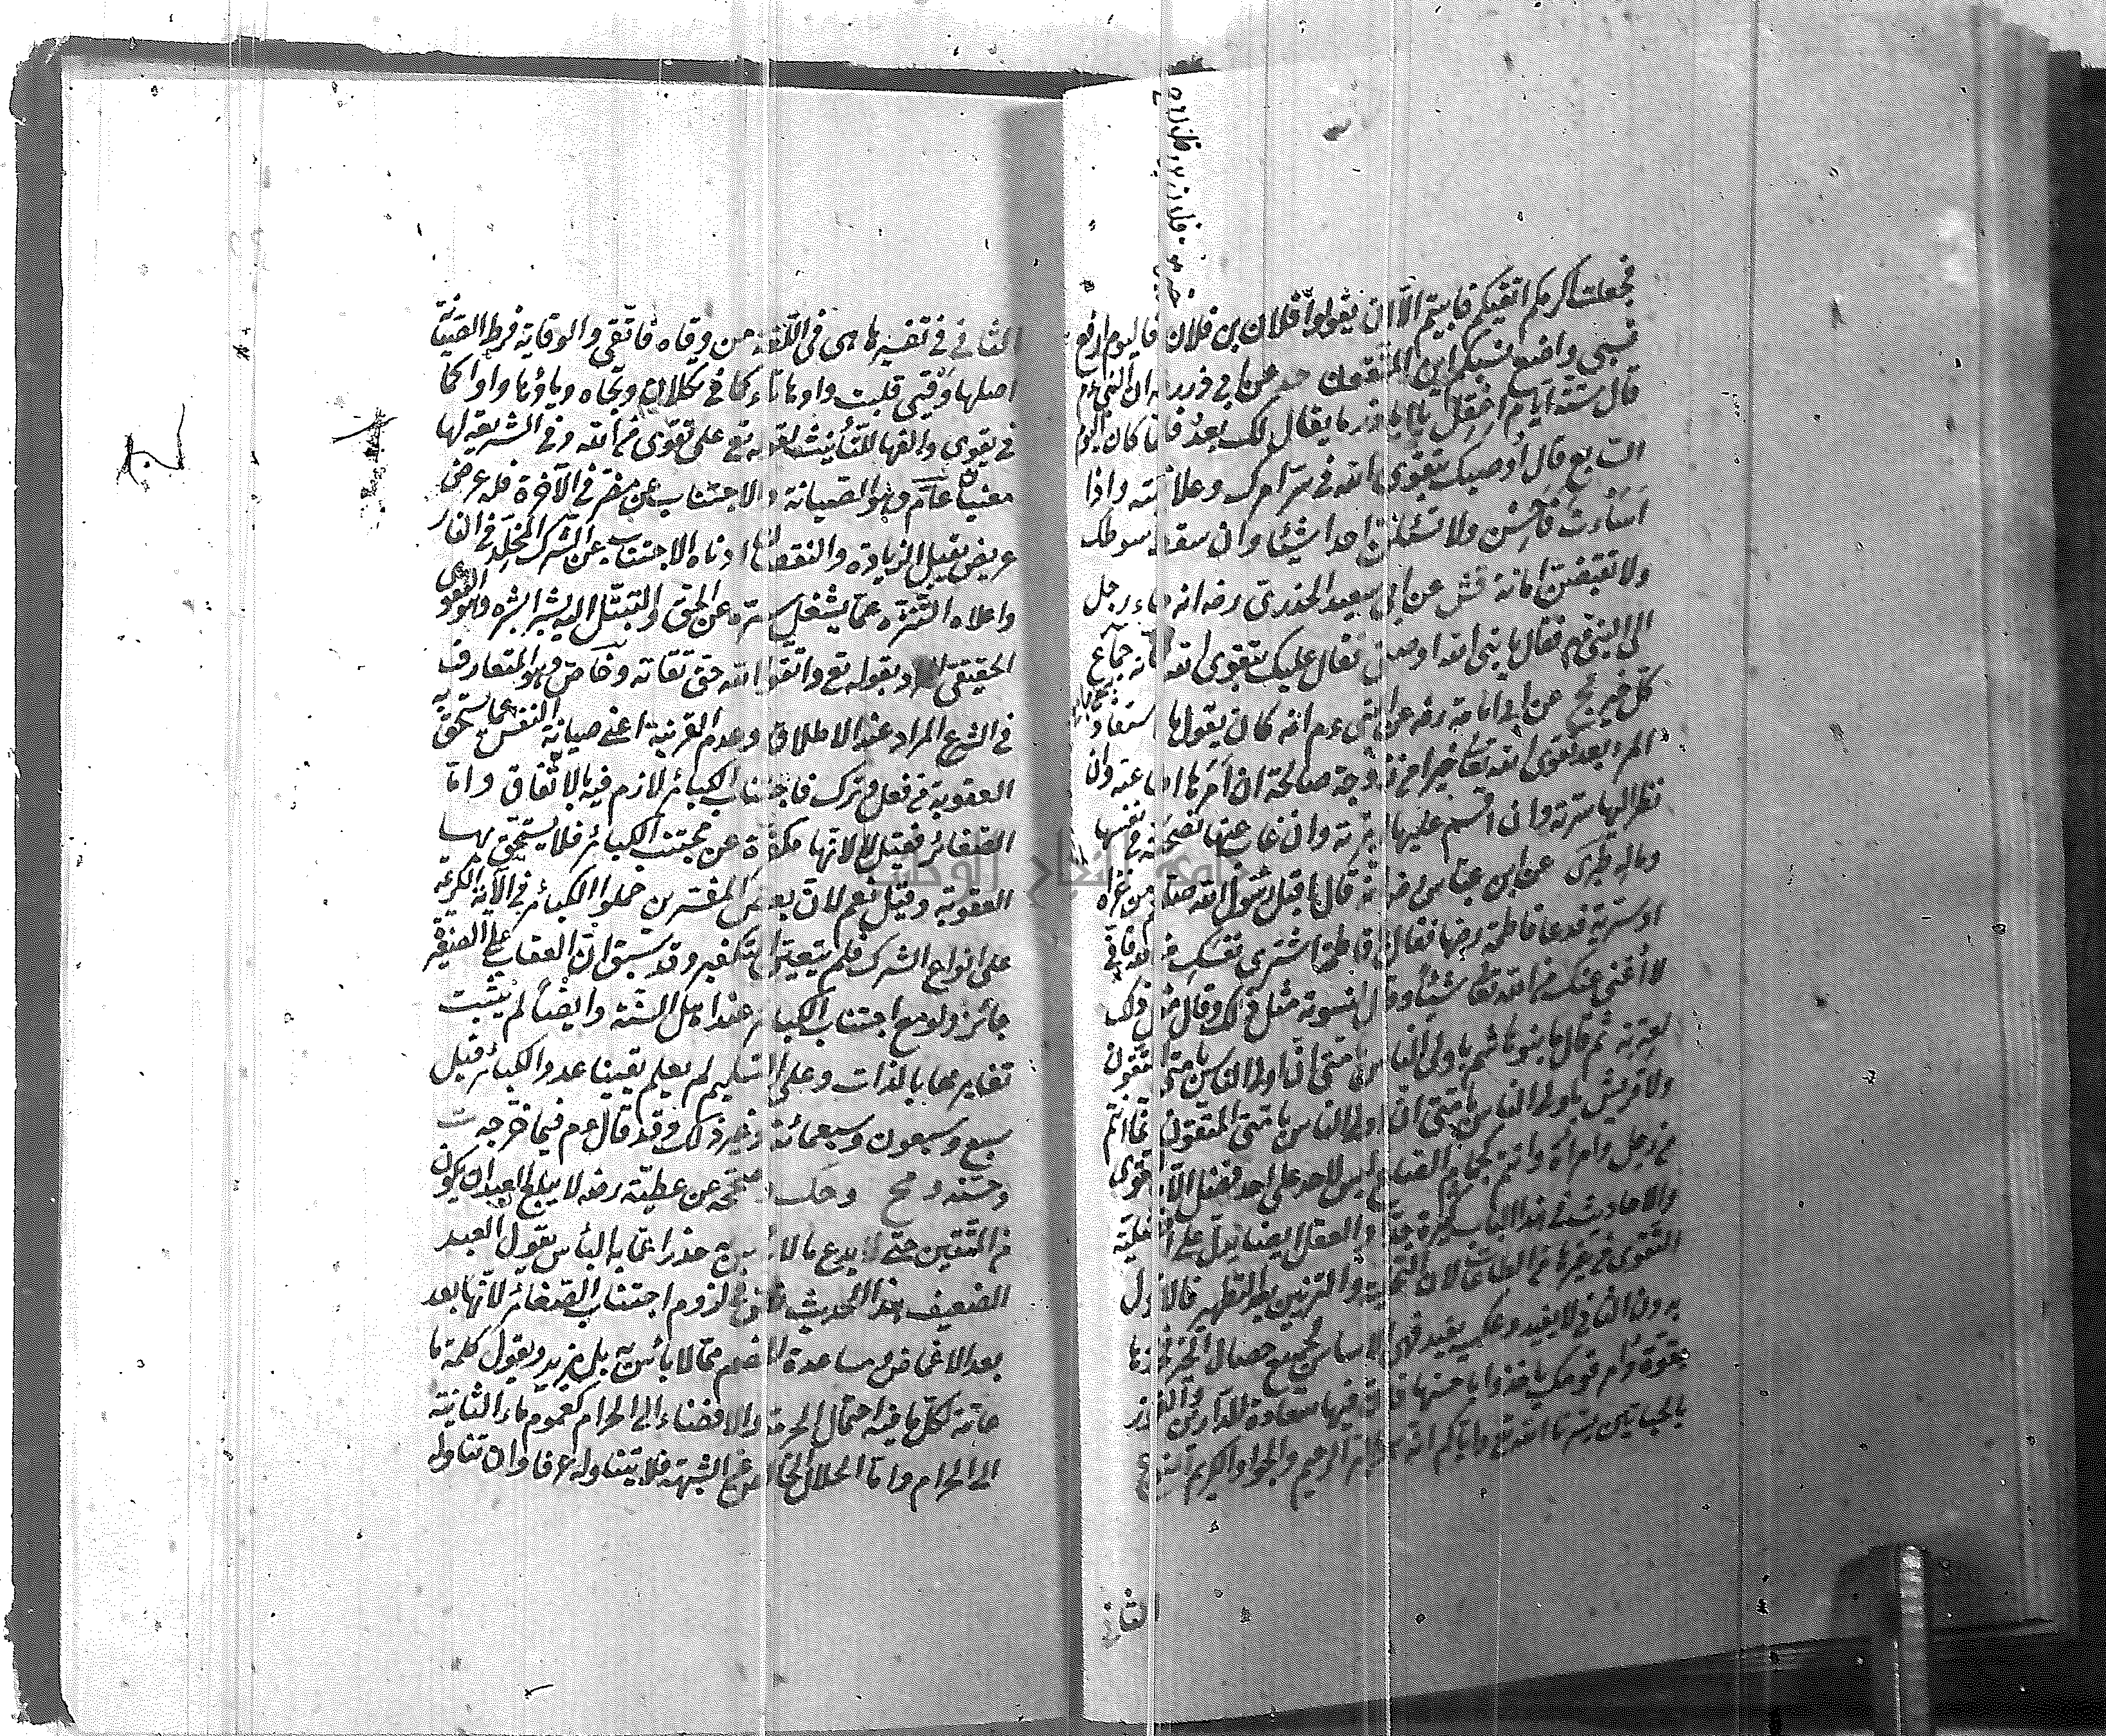 فجعلت اكرمكم اتقيكم فابيتم الا ان يقولوا فلان بن فلان فاليوم ارفع
نسبي واضع نسبكم اين المتقون حد عن ابي ذر رضه ان النبي عم
قال ستة ايام اعقل يا ابا ذر ما يقال لك بعد فلما كان اليوم
السابع قال اوصيك بتقوى الله في سر امرك وعلانيته واذا
اسأت فاحسن ولا تسئلن احدا شيئا وان سقط سوطك
ولا تقبضن امانة عن ابي سعيد الخدري رضه انه جاء رجل
الى النبي عم فقال يا نبي الله اوصني فقال عليك بتقوى الله فانه جماع
كل خير مج عن ابي امامة رضه عن النبي عم انه كان يقول ما استفاد
المرء بعد تقوى الله تعا خيرا من زوجة صالحة ان امرها اطاعته وان
نظر اليها سرته وان اقسم عليها ابرته وان غاب عنها نصحته في نفسها
وماله طبراني عن ابن عباس رضه انه قال ما قبل رسول الله صلعم من غزاة
او سرية فدعا فاطمة رضها فقال يا فاطمة اشتري نفسك من الله فاني
لا اغني عنك من الله تعا شيئا وقال لنسوته مثل ذلك وقال مثل ذلك
لعترته ثم قال ما بنو هاشم باولى الناس بامتي ان اولى الناس بامتي المتقون
ولا قريش باولى الناس بامتي ان اولى الناس بامتي المتقون انما انتم
من رجل وامرأة وانتم كجمام الصاع ليس لاحد على احد فضل الا بالتقوى
والاحاديث في هذا الباب كثيرة جدا والعقل ايضا يدل على افضلية
التقوى من غيرها من الطاعات لان التحلية والتزيين بعد التطهير فالاول
بدون الثاني لا يفيد وعكسه يفيد فهي الاساس لجميع خصال الخير فخذها
بقوة وأمر قومك ياخذوا باحسنها فان فيها سعادة الدارين والفوز
بالحياتين يسرنا الله تع واياكم انه هو البر الرحيم والجواد الكريم النوع
الثاني
الثاني في تفسيرها هي في اللغة من وقاه فاتقى والوقاية فرط الصيانة
اصلها وقيى قلبت واوها تاء كما في تكلان وتجاه وياؤها واوا كما
في يقوى والفها للتأنيث لقوله تع على تقوى من الله وفي الشريعة لها
معنيان عام وهو الصيانة والاجتناب عن مضر في الآخرة فله عرض
عريض يقبل الزيادة والنقصان ادناه الاجتناب عن الشرك المخلد في النار
واعلاه التنزه عما يشغل سره عن الحق والتبتل اليه بشراشره وهو التقوى
الحقيقي المراد بقوله تع واتقوا الله حق تقاته وخاص وهو المتعارف
في الشرع المراد عند الاطلاق وعدم القرينة اعني صيانة النفس عما يستحق به
العقوبة من فعل او ترك فاجتناب الكبائر لازم فيه بالاتفاق واما
الصغائر فقيل لا لانها مكفرة عن مجتنب الكبائر فلا يستحق بها
العقوبة وقيل نعم لان بعض المفسرين حملوا الكبائر في الآية الكريمة
على انواع الشرك فلم يتعين التكفير وقد سبق ان العقاب على الصغيرة
جائز ولو مع اجتناب الكبائر عند اهل السنة وايضا لم يثبت
تغايرهما بالذات وعلى التسليم لم يعلم تعيينا عدد الكبائر قيل
سبع وسبعون وسبعمائة وغير ذلك وقد قال عم فيما خرجه ت
وحسنه ومج وحك وصححه عن عطية رضه لا يبلغ العبد ان يكون
من المتقين حتى لا يدع ما لا بأس به حذرا عما به البأس يقول العبد
الضعيف هذا الحديث نص في لزوم اجتناب الصغائر لانها بعد
بعد الاغماض ومساعدة الخصم مما لا بأس به بل يزيد ويقول كلمة ما
عامة لكل ما فيه احتمال الحرمة والافضاء الى الحرام كعموم ماء الثانية
الى الحرام واما الحلال الخالص عن الشبهة فلا يتناوله عرفا وان تناوله